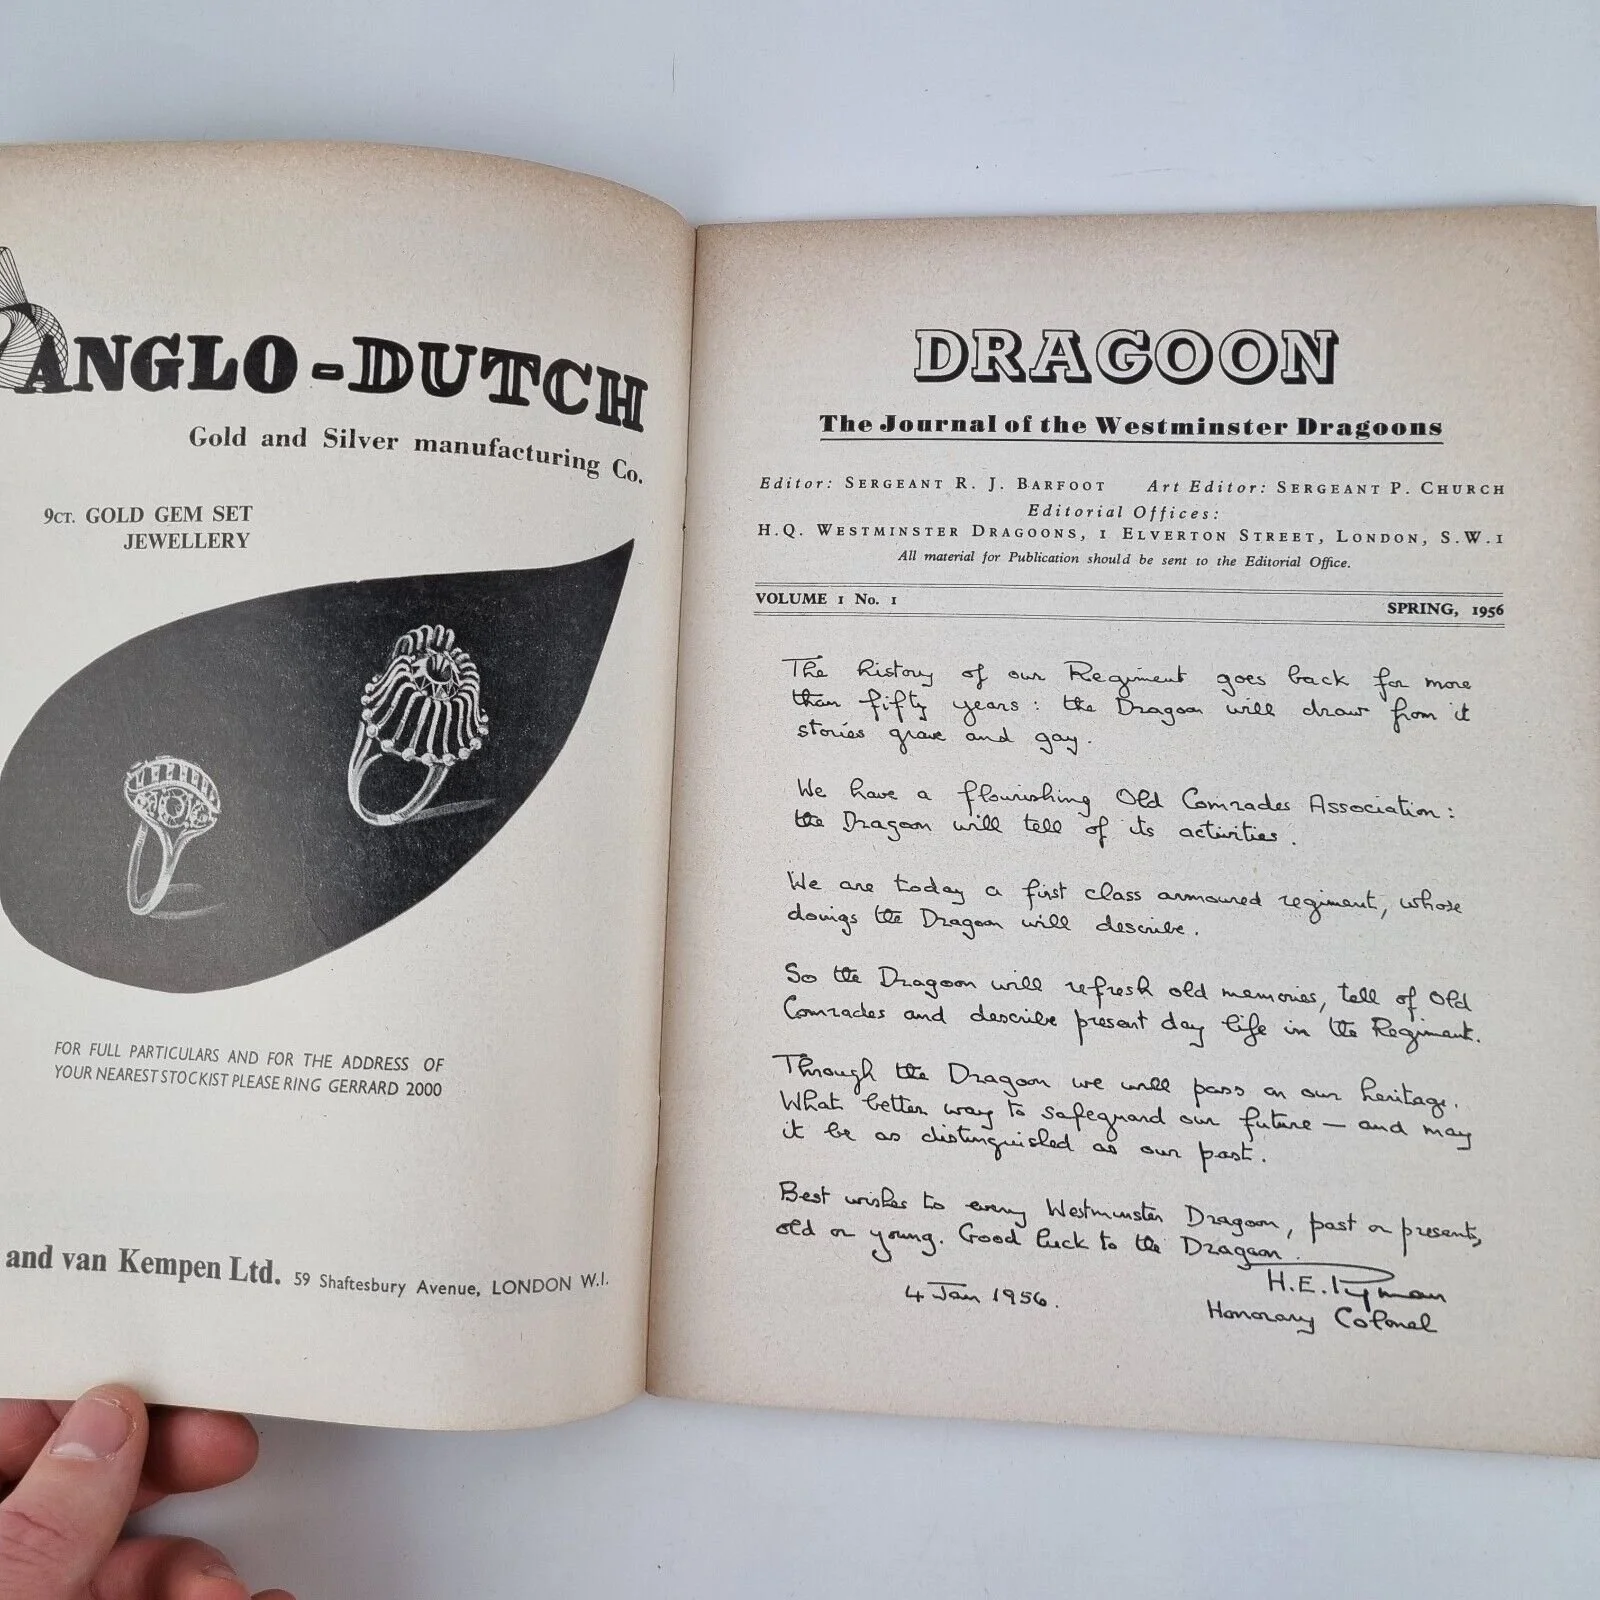 ANGLO-DUTCH
Gold and Silver manufacturing Co.
9CT. GOLD GEM SET
JEWELLERY
FOR FULL PARTICULARS AND FOR THE ADDRESS OF
YOUR NEAREST STOCKIST PLEASE RING GERRARD 2000
and van Kempen Ltd. 59 Shaftesbury Avenue, LONDON W.I.
DRAGOON
The Journal of the Westminster Dragoons
Editor: SERGEANT R. J. BARFOOT Art Editor: SERGEANT P. CHURCH
Editorial Offices:
H.Q. WESTMINSTER DRAGOONS, 1 ELVERTON STREET, LONDON, S.W.1
All material for Publication should be sent to the Editorial Office.
VOLUME 1 No. 1 SPRING, 1956
The history of our Regiment goes back for more
than fifty years: the Dragoon will draw from it
stories grave and gay.
We have a flourishing Old Comrades Association:
the Dragoon will tell of its activities.
We are today a first class armoured regiment, whose
doings the Dragoon will describe.
So the Dragoon will refresh old memories, tell of Old
Comrades and describe present day life in the Regiment.
Through the Dragoon we will pass on our heritage.
What better way to safeguard our future — and may
it be as distinguished as our past.
Best wishes to every Westminster Dragoon, past or present,
old or young. Good luck to the Dragoon.
H.E. Pyman
4 Jan 1956.
Honorary Colonel